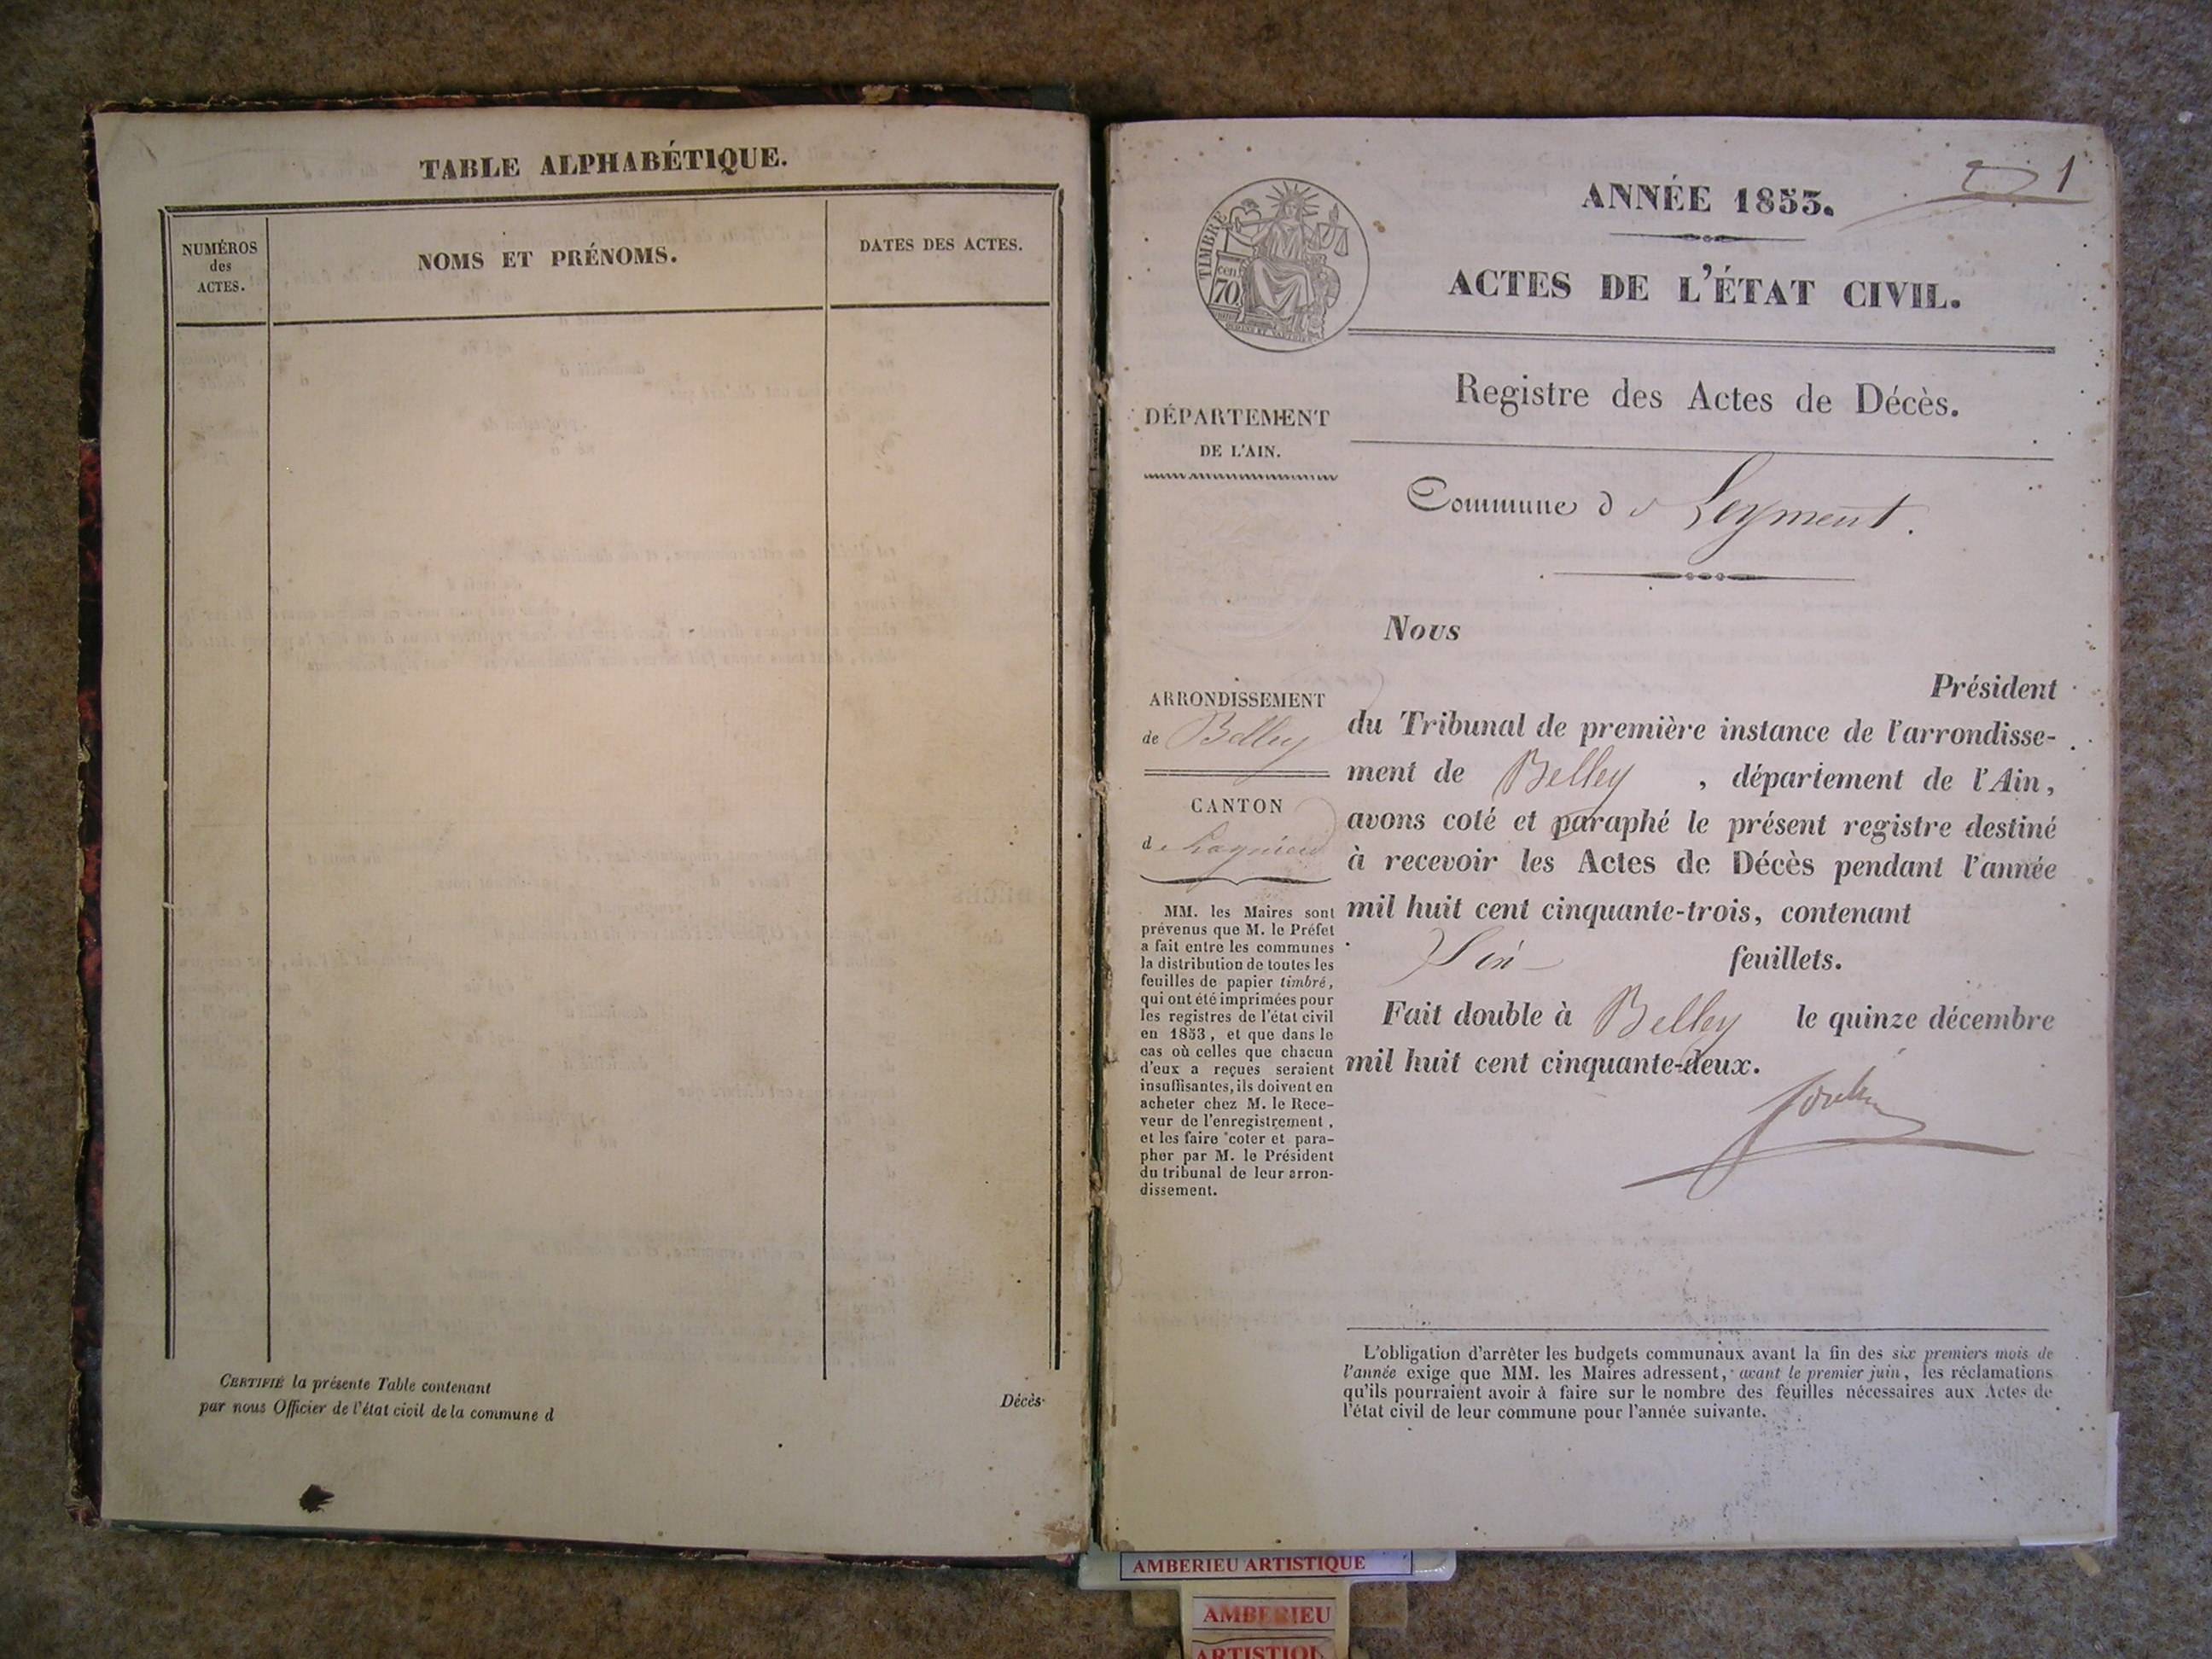 TABLE ALPHABÉTIQUE.
NUMÉROS
des
ACTES.
NOMS ET PRÉNOMS.
DATES DES ACTES.
CERTIFIÉ la présente Table contenant
Décès
par nous Officier de l'état civil de la commune d
1
ANNÉE 1853.
ACTES DE L'ÉTAT CIVIL.
TIMBRE
cen
70
Registre des Actes de Décès.
DÉPARTEMENT
DE L'AIN.
Commune de Leyment.
Nous
Président
du Tribunal de première instance de l'arrondisse-
ment de Belley, département de l'Ain,
avons coté et paraphé le présent registre destiné
à recevoir les Actes de Décès pendant l'année
mil huit cent cinquante-trois, contenant
Six feuillets.
Fait double à Belley le quinze décembre
mil huit cent cinquante-deux.
ARRONDISSEMENT
de Belley
CANTON
de Lagnieu
MM. les Maires sont
prévenus que M. le Préfet
a fait entre les communes
la distribution de toutes les
feuilles de papier timbré,
qui ont été imprimées pour
les registres de l'état civil
en 1853, et que dans le
cas où celles que chacun
d'eux a reçues seraient
insuffisantes, ils doivent en
acheter chez M. le Rece-
veur de l'enregistrement,
et les faire coter et para-
pher par M. le Président
du tribunal de leur arron-
dissement.
L'obligation d'arrêter les budgets communaux avant la fin des six premiers mois de
l'année exige que MM. les Maires adressent, avant le premier juin, les réclamations
qu'ils pourraient avoir à faire sur le nombre des feuilles nécessaires aux Actes de
l'état civil de leur commune pour l'année suivante.
AMBERIEU ARTISTIQUE
AMBERIEU